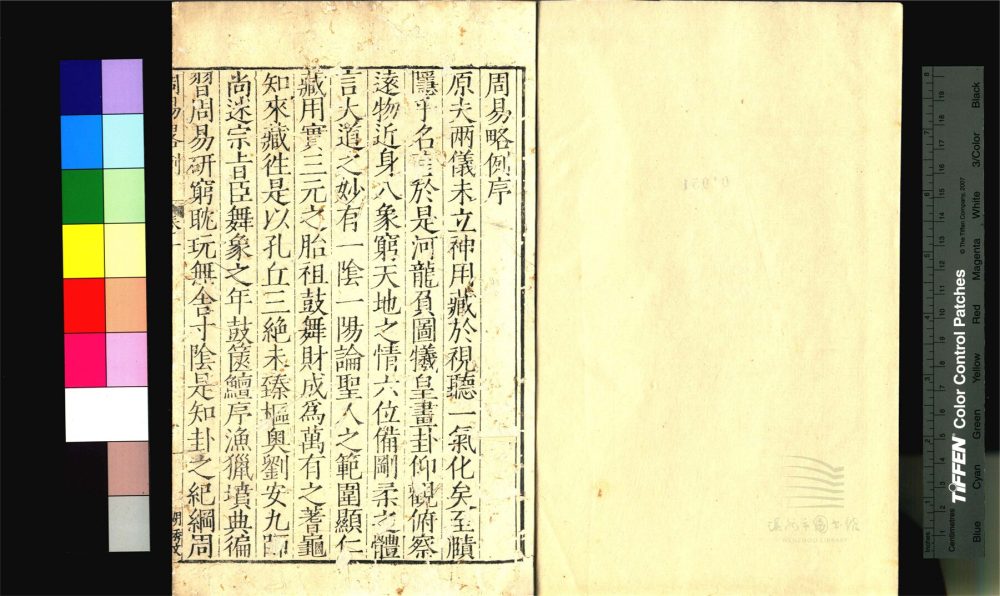 周易略例序
原夫兩儀未立神用藏於視聽一氣化矣至賾
隱乎名言於是河龍負圖犧皇畫卦仰觀俯察
遠物近身八象窮天地之情六位備剛柔之體
言大道之妙有一陰一陽論聖人之範圍顯仁
藏用實三元之胎祖鼓舞財成爲萬有之蓍龜
知來藏徃是以孔丘三絶未臻樞奥劉安九師
尚迷宗旨臣舞象之年鼓篋鱣序漁獵墳典徧
習周易研窮耽玩無舍寸陰是知卦之紀綱周
周易畧例
溫州市圖書館
WENZHOU LIBRARY
TIFFEN Color Control Patches
© The Tiffen Company, 2007
Blue Cyan Green Yellow Red Magenta White 3/Color Black
Inches 1 2 3 4 5 6 7 8
Centimetres 1 2 3 4 5 6 7 8 9 10 11 12 13 14 15 16 17 18 19